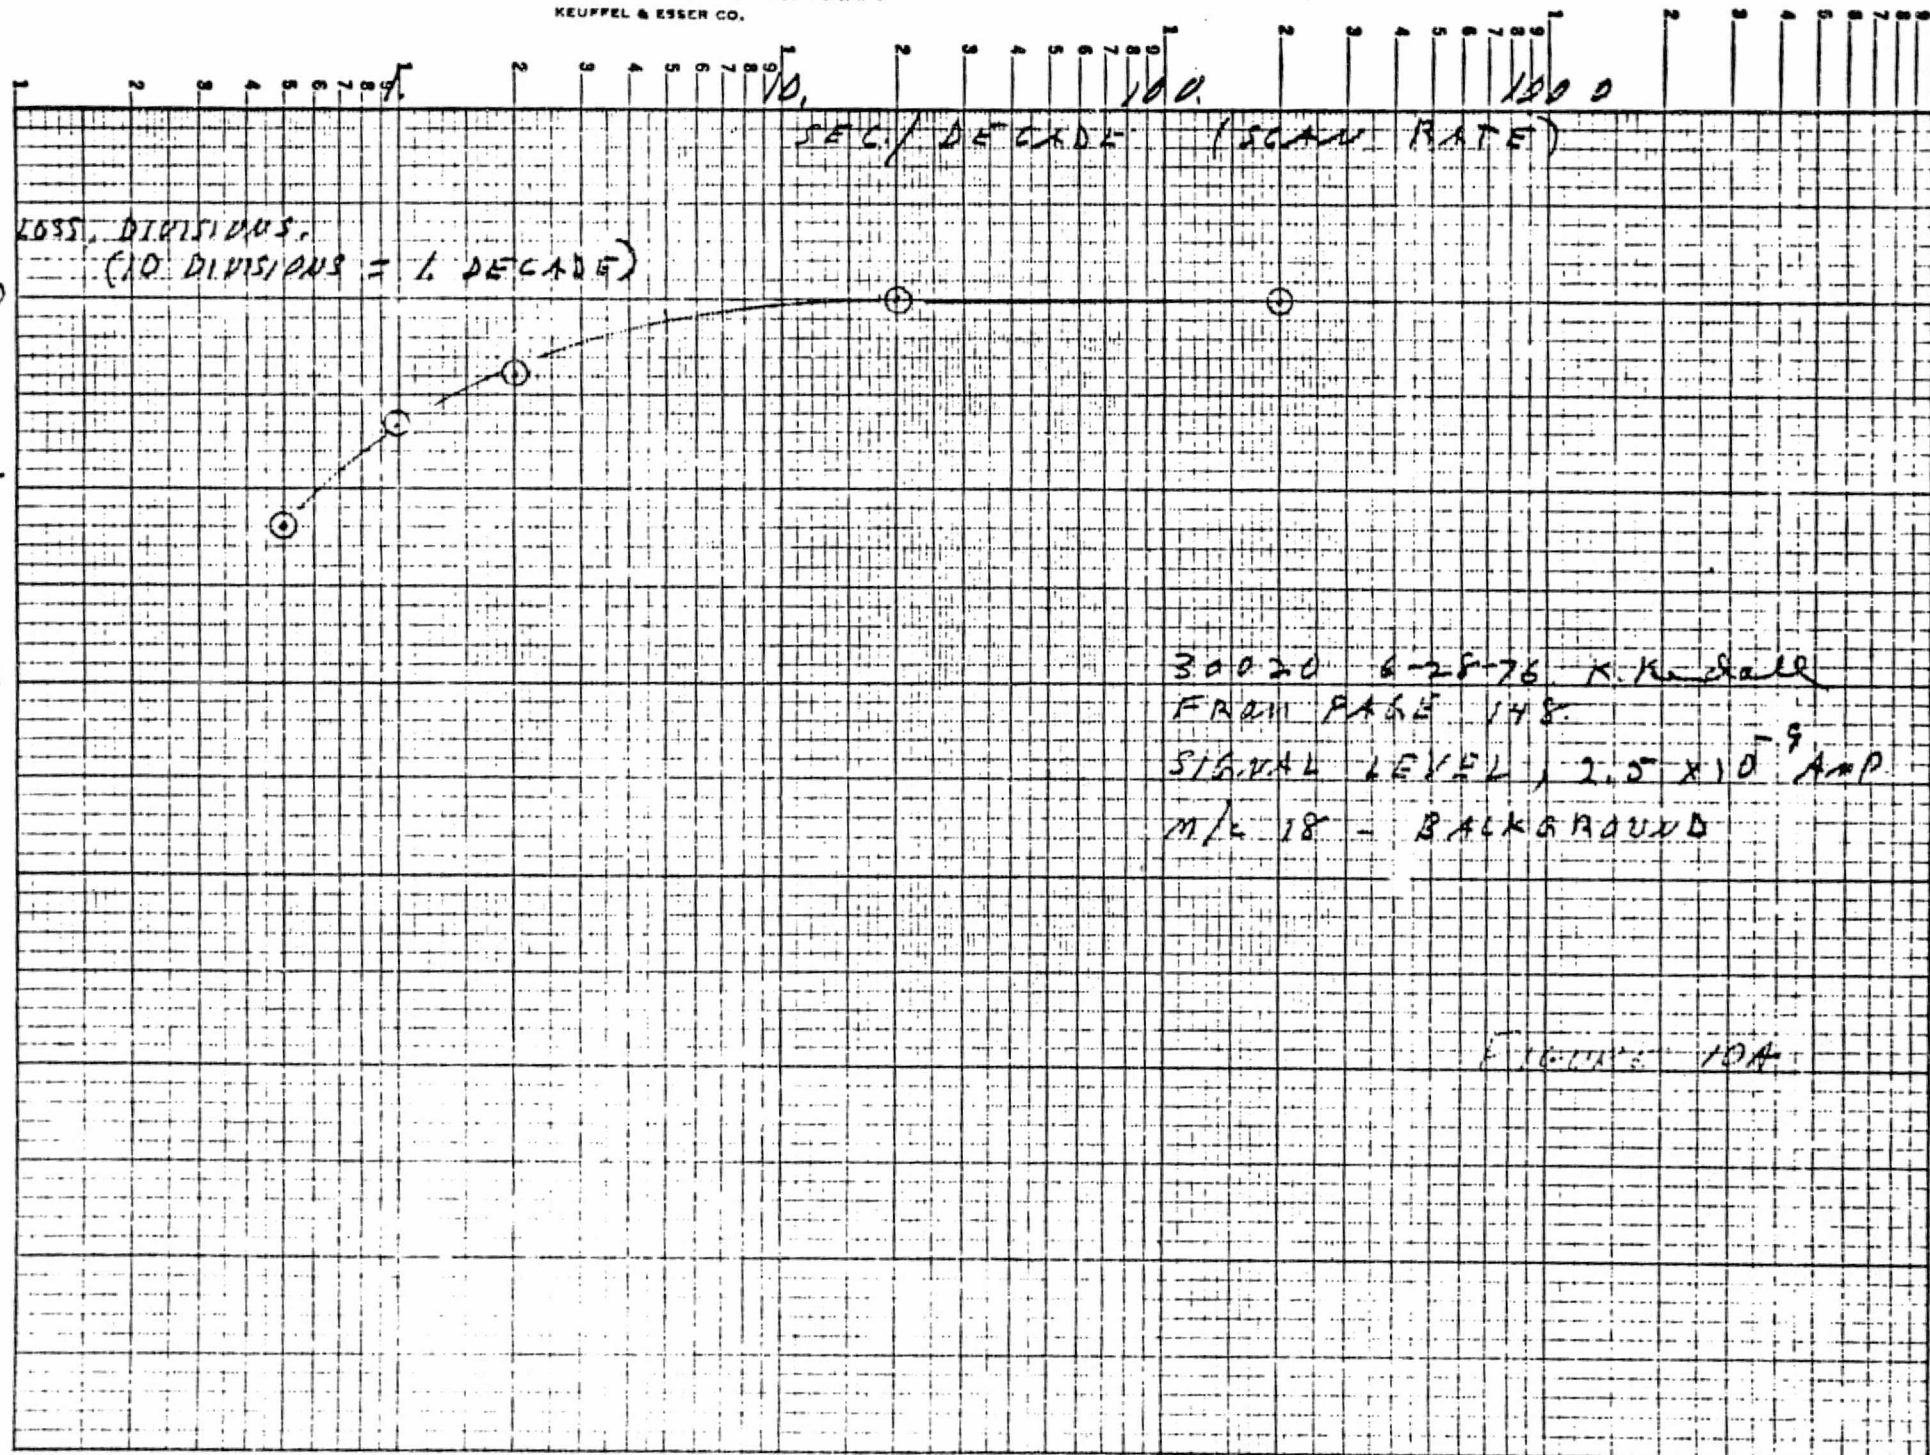 KEUFFEL & ESSER CO.
1 2 3 4 5 6 7 8 9 1 2 3 4 5 6 7 8 9 1 2 3 4 5 6 7 8 9 1 2 3 4 5 6 7 8 9 1 2 3 4 5 6 7 8 9
1. 10. 100. 1000
SEC./DECADE (SCAN RATE)
LOSS, DIVISIONS.
(10 DIVISIONS = 1 DECADE)
30020 6-28-76 K. Kendall
FROM PAGE 148.
SIGNAL LEVEL, 2.5 x 10⁻⁹ AMP
M/e 18 - BACKGROUND
FIGURE 10A